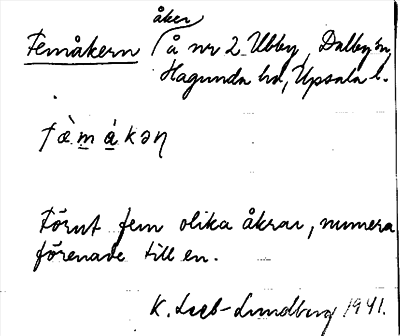 åker
Femåkern å nr 2 Ubby, Dalby sn,
Hagunda hd, Upsala l.
fæ̀mákəɳ
Förut fem olika åkrar, numera
förenade till en.
K. Leeb-Lundberg 1941.